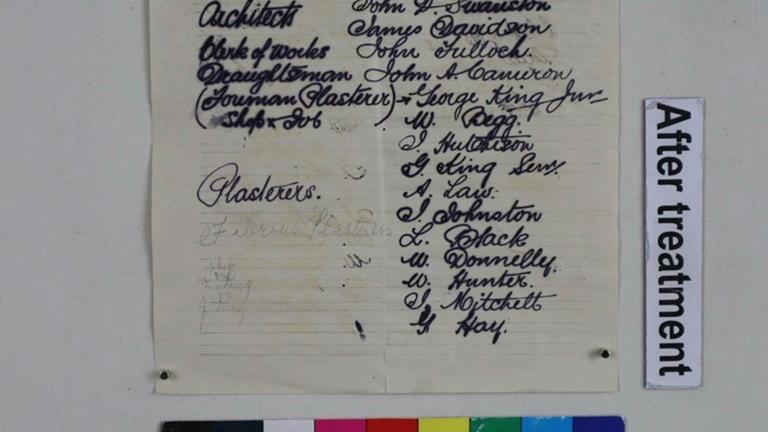 John D. Swanston
Architects James Davidson
Clerk of Works John Tulloch.
Draughtsman John A. Cameron
(Forman Plasterer) George King Junr
Shop & Job W. Begg.
J. Hutchison
G. King Senr.
Plasterers. A. Law.
J. Johnston
Fibrous Plasterers L. Black
W. Donnelly.
W. Hunter.
J. Mitchell
G. Hay.
After treatment